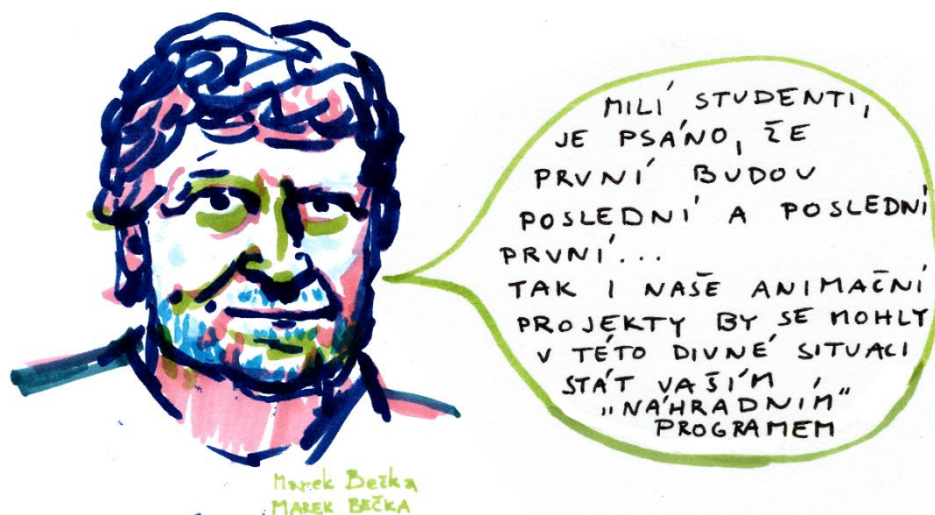 MILÍ STUDENTI,
JE PSÁNO, ŽE
PRVNÍ BUDOU
POSLEDNÍ A POSLEDNÍ
PRVNÍ...
TAK I NAŠE ANIMAČNÍ
PROJEKTY BY SE MOHLY
V TÉTO DIVNÉ SITUACI
STÁT VAŠÍM
„NÁHRADNÍM“
PROGRAMEM
Marek Bečka
MAREK BEČKA